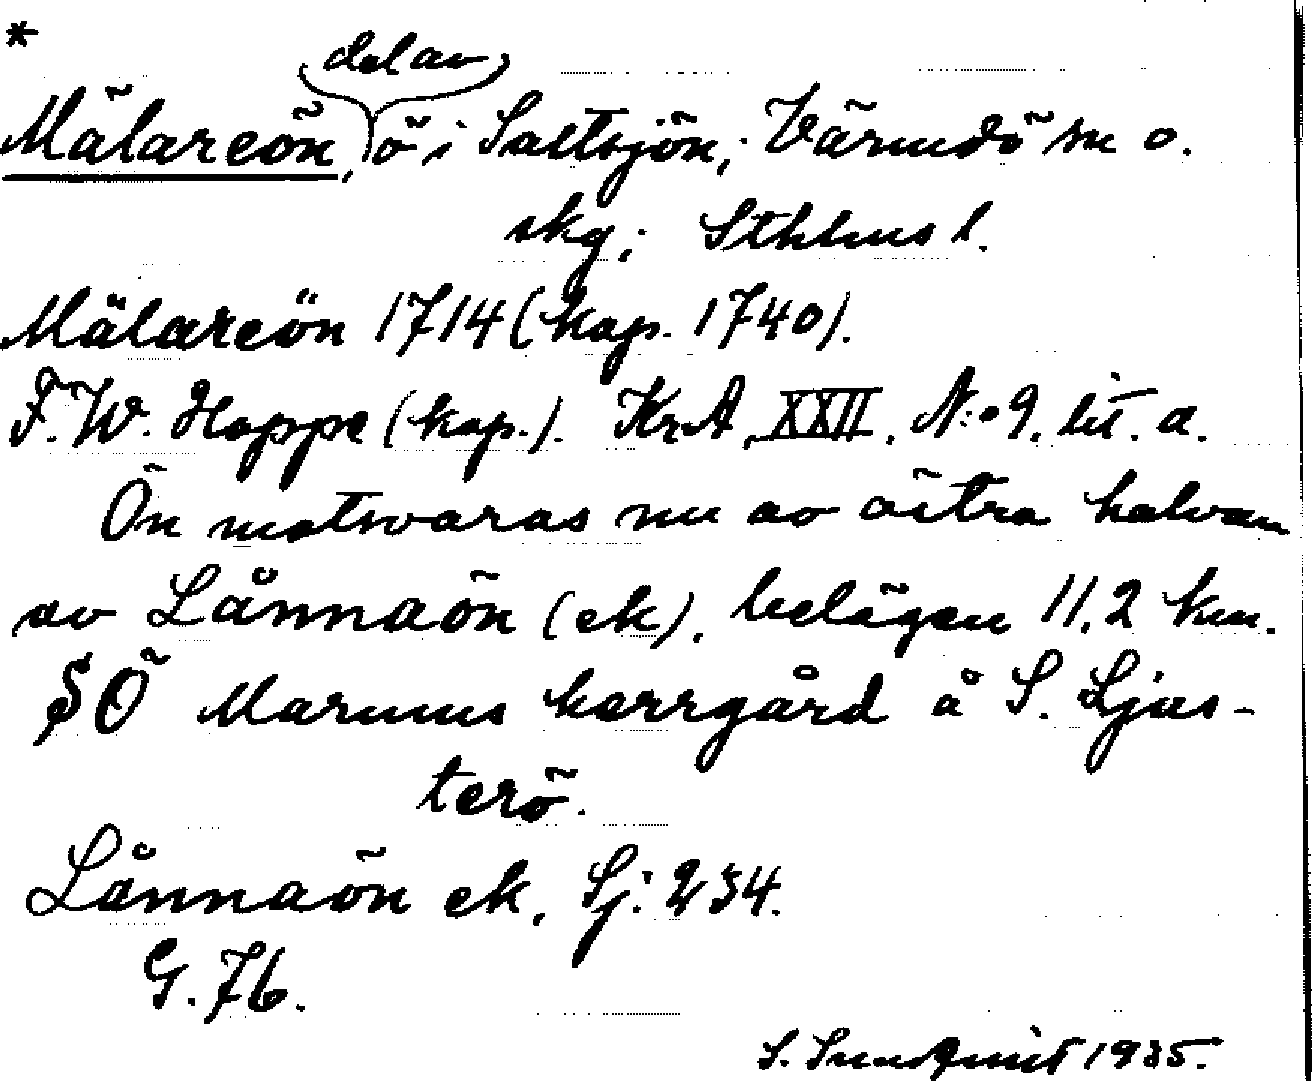 *
del av
Mälareön, ö i Saltsjön; Värmdö sn o.
skg; Sthlms l.
Mälareön 1714 (kop. 1740).
F. W. Hoppe (kop.). KrA, XXII, N:o 9, lit. a.
Ön motsvaras nu av östra halvan
av Lånnaön (ek), belägen 11,2 km.
SÖ Marums herrgård å S. Ljus-
terö.
Lånnaön ek, Sj: 234.
G. 76.
S. Sundquist 1935.